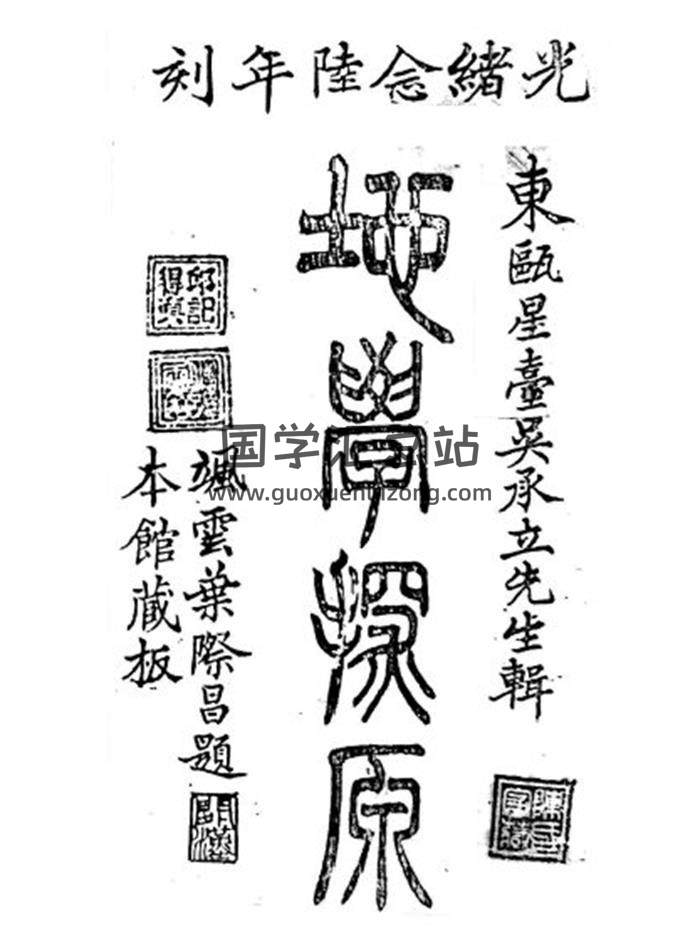 光緒念陸年刻
東甌星臺吳承立先生輯
地學探原
颯雲葉際昌題
本館藏板
邱記得真
国学汇宗站
www.guoxuehuizong.com